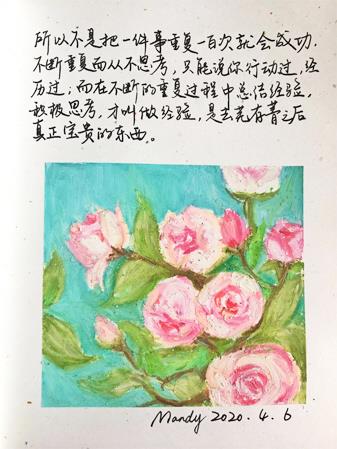 所以不是把一件事重复一百次就会成功.
不断重复而从不思考，只能说你行动过，经
历过；而在不断的重复过程中总结经验，
积极思考，才叫做经验，是去芜存菁之后
真正宝贵的东西。
Mandy 2020. 4. 6